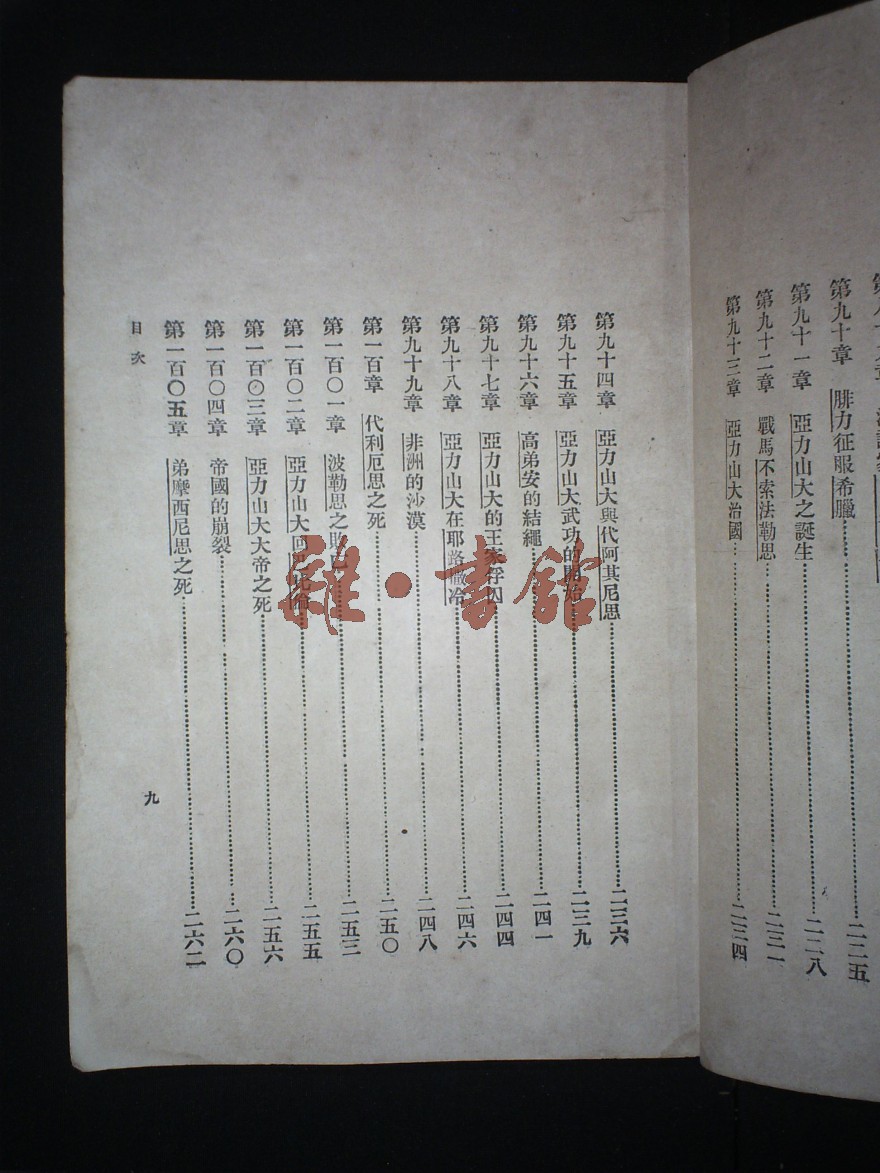 第九十章　腓力征服希臘……二二五
第九十一章　亞力山大之誕生……二二八
第九十二章　戰馬不索法勒思……二三一
第九十三章　亞力山大治國……二三四
第九十四章　亞力山大與代阿其尼思……二三六
第九十五章　亞力山大武功的開始……二三九
第九十六章　高弟安的結繩……二四一
第九十七章　亞力山大的王家俘囚……二四四
第九十八章　亞力山大在耶路撒冷……二四六
第九十九章　非洲的沙漠……二四八
第一百章　代利厄思之死……二五〇
第一百〇一章　波勒思之敗……二五三
第一百〇二章　亞力山大回巴比倫……二五五
第一百〇三章　亞力山大大帝之死……二五六
第一百〇四章　帝國的崩裂……二六〇
第一百〇五章　弟摩西尼思之死……二六二
目次
九
雜·書館